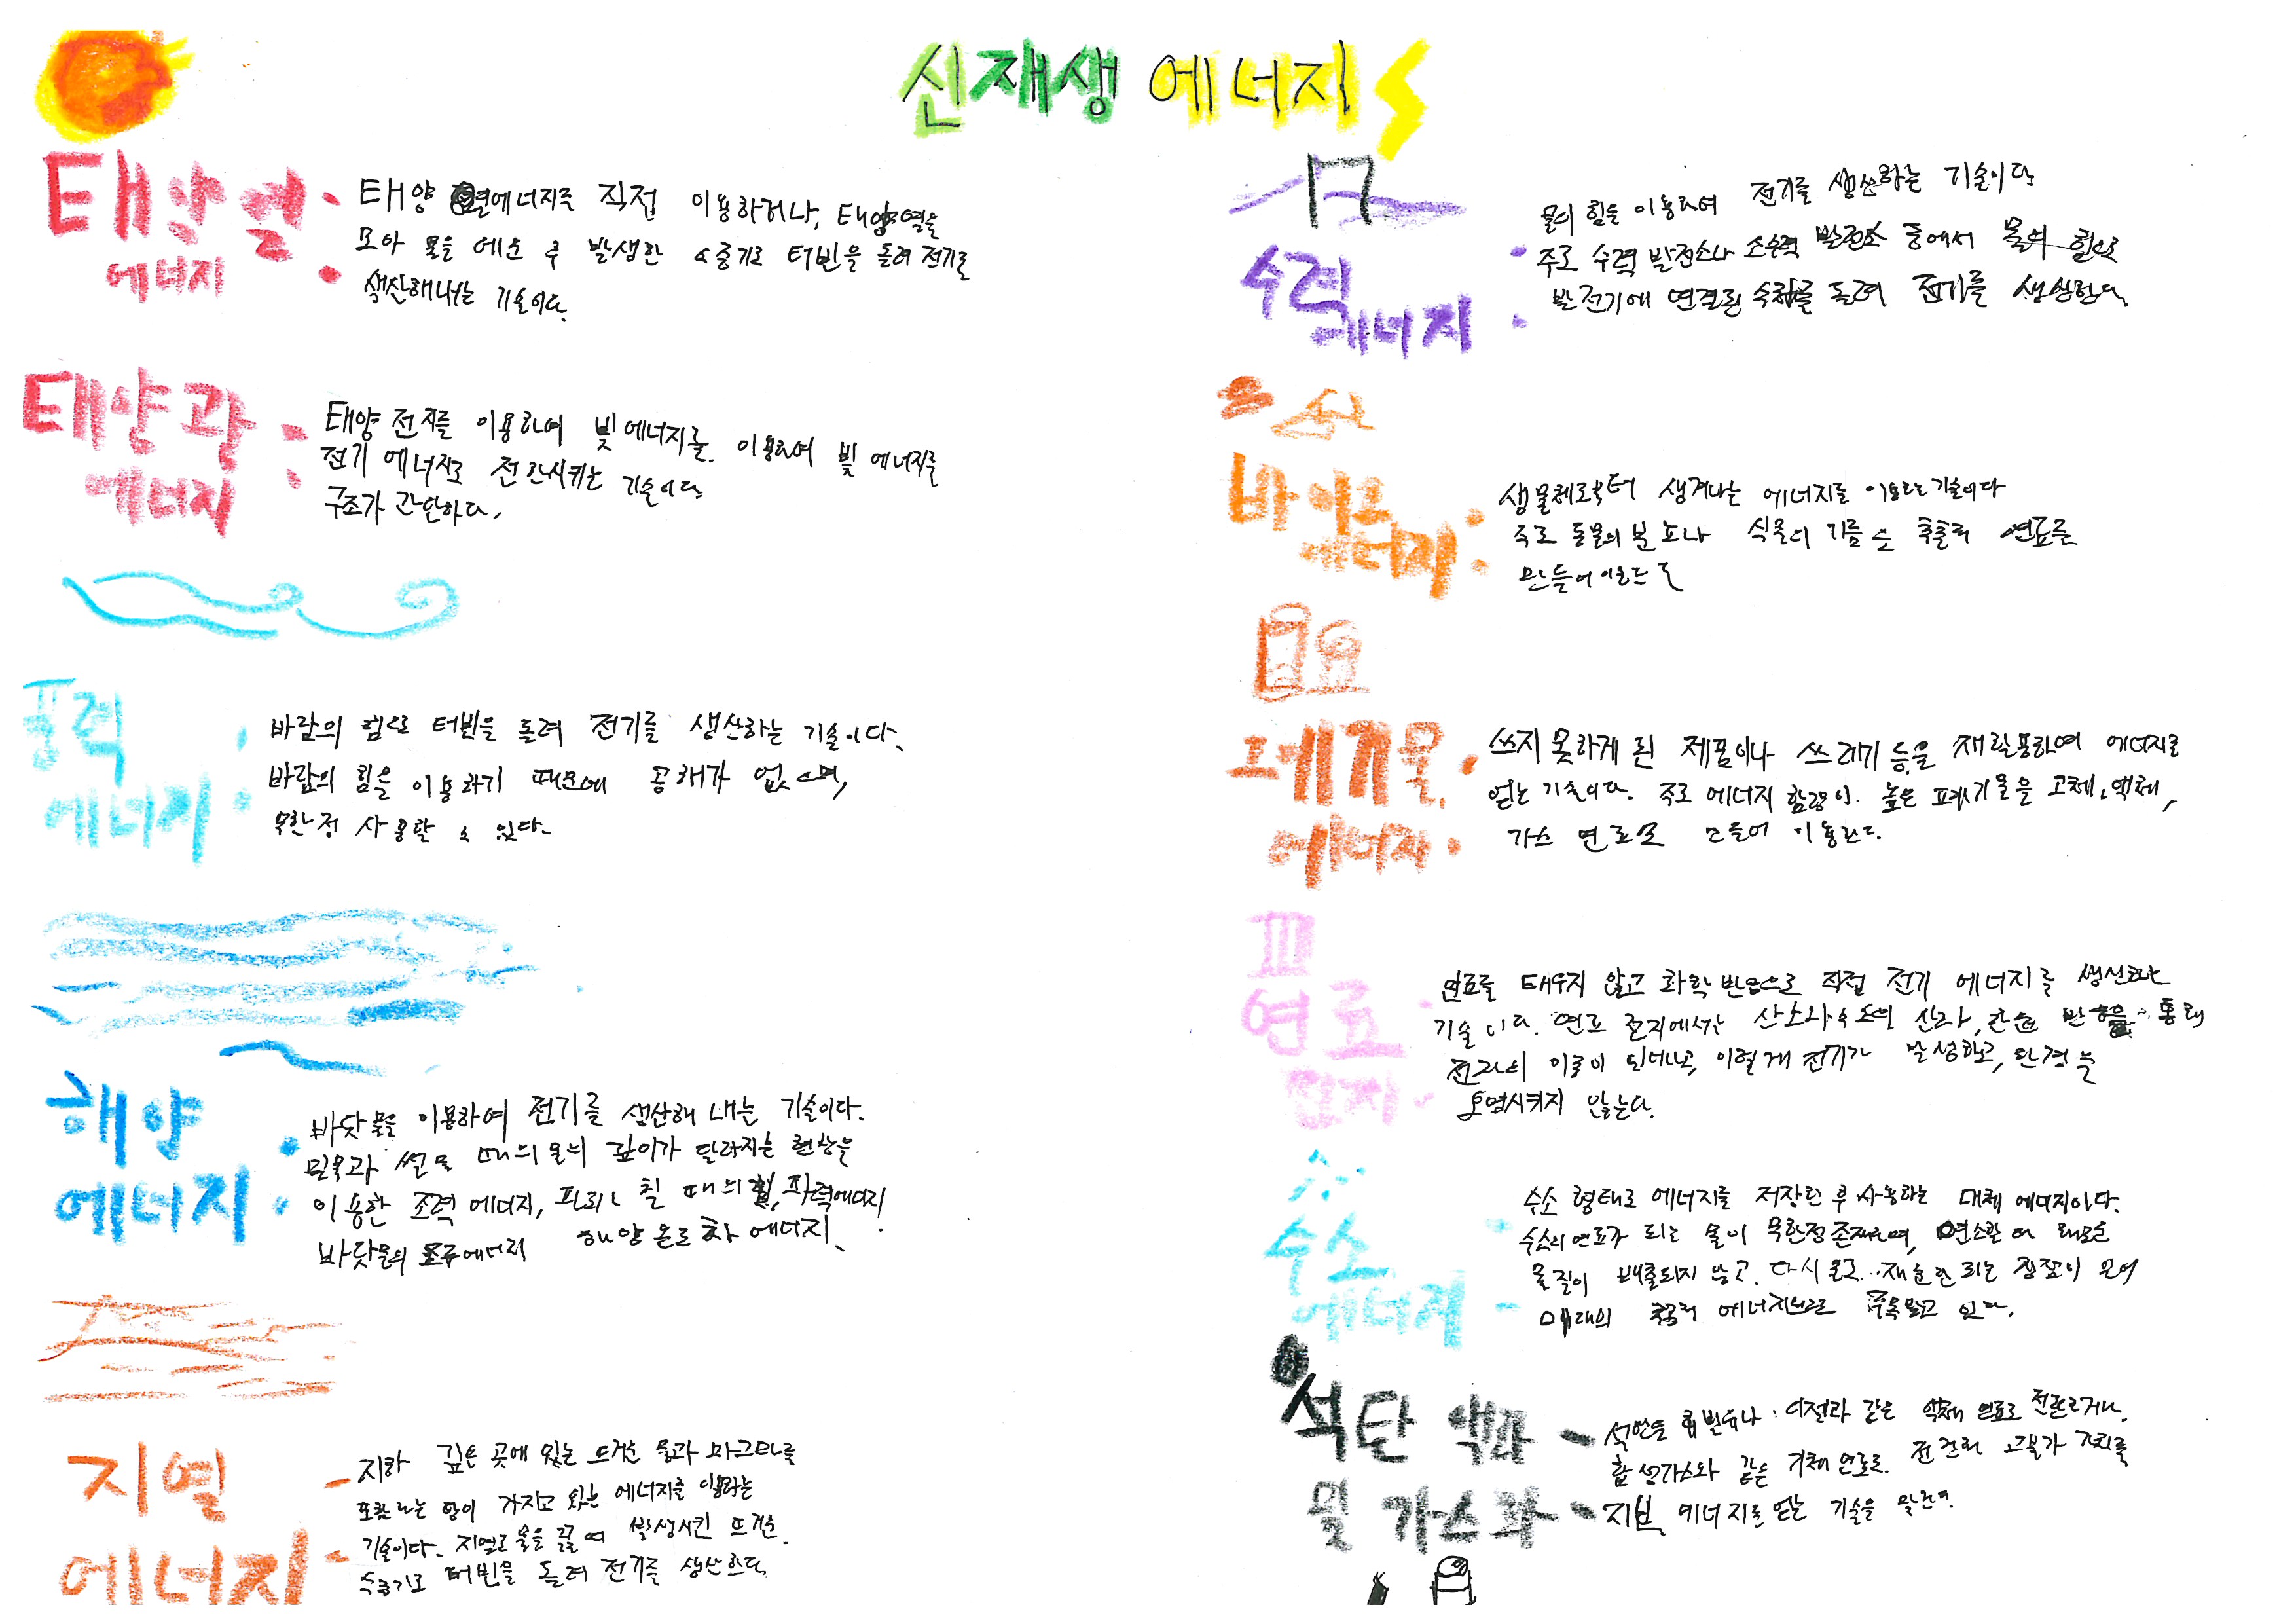 신재생 에너지
태양열
에너지
태양열에너지를 직접 이용하거나, 태양열을
모아 물을 데운 후 발생한 수증기로 터빈을 돌려 전기를
생산해내는 기술이다.
태양광
에너지
태양 전지를 이용하여 빛에너지를 이용하여 빛 에너지를
전기 에너지로 전환시키는 기술이다
구조가 간단하다.
풍력
에너지
바람의 힘으로 터빈을 돌려 전기를 생산하는 기술이다.
바람의 힘을 이용하기 때문에 공해가 없으며,
무한정 사용할 수 있다.
해양
에너지
바닷물을 이용하여 전기를 생산해 내는 기술이다.
밀물과 썰물 때의 물의 깊이가 달라지는 현상을
이용한 조력 에너지, 파도가 칠 때의 힘, 파력에너지
바닷물의 조류에너지 해양 온도차 에너지
지열
에너지
지하 깊은 곳에 있는 뜨거운 물과 마그마를
포함하는 땅이 가지고 있는 에너지를 이용하는
기술이다. 지열로 물을 끓여 발생시킨 뜨거운
수증기로 터빈을 돌려 전기를 생산한다
수력
에너지
물의 힘을 이용하여 전기를 생산하는 기술이다
주로 수력 발전소나 소수력 발전소 등에서 물의 힘으로
발전기에 연결된 수차를 돌려 전기를 생산한다
바이오
에너지
생물체로부터 생겨나는 에너지를 이용하는 기술이다
주로 동물의 분뇨나 식물의 기름을 추출해 연료를
만들어 이용한다
폐기물
에너지
쓰지 못하게 된 제품이나 쓰레기 등을 재활용하여 에너지를
얻는 기술이다. 주로 에너지 함량이 높은 폐기물을 고체, 액체,
가스 연료로 만들어 이용한다.
연료
전지
연료를 태우지 않고 화학 반응으로 직접 전기 에너지를 생산하는
기술이다. 연료 전지에서는 산소와 수소의 산화, 환원 반응을 통해
전자의 이동이 되는데, 이렇게 전기가 발생하고, 환경을
오염시키지 않는다.
수소
에너지
수소 형태로 에너지를 저장한 후 사용하는 대체 에너지이다.
수소의 연료가 되는 물이 무한정 존재하며, 연소할 때 해로운
물질이 배출되지 않고 다시 물로 재순환 되는 장점이 있어
미래의 청정 에너지원으로 주목받고 있다.
석탄 액화
및 가스화
같은 액체 연료로 전환하거나
합성가스와 같은 기체 연료로 전환해 고부가 가치를
지닌 에너지를 얻는 기술을 말한다.